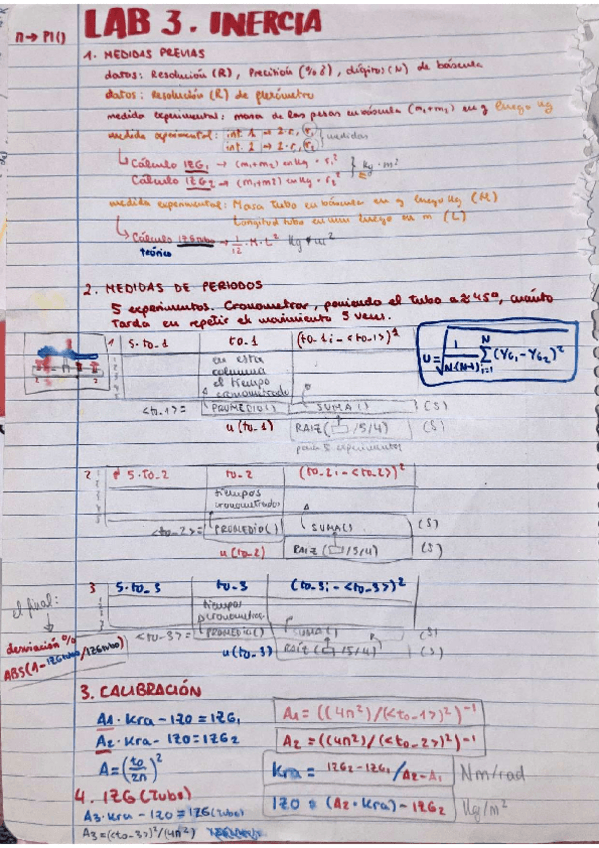 π → PI()
LAB 3. INERCIA
1. MEDIDAS PREVIAS
datos: Resolución (R), Precisión (%δ), dígitos (N) de báscula
datos: Resolución (R) de flexómetro
medida experimental: masa de las pesas en báscula (m1+m2) en g luego kg
medida experimental: int. 1 → 2·r, r1
int. 2 → 2·r, r2 medidas
Cálculo IZG1 → (m1+m2) en kg · r1²
Cálculo IZG2 → (m1+m2) en kg · r2² kg·m²
medida experimental: Masa tubo en báscula en g luego kg (M)
Longitud tubo en mm luego en m (L)
Cálculo IZGtubo → 1/12 · M · L² kg·m²
teórico
2. MEDIDAS DE PERIODOS
5 experimentos. Cronometrar, poniendo el tubo a ≈ 45º, cuánto
tarda en repetir el movimiento 5 veces.
1 5·to_1 to_1 (to_1i - <to_1>)²
en esta
columna
el tiempo
cronometrado
<to_1> = PROMEDIO() SUMA() (s)
u(to_1) RAIZ(▭/5/4) (s)
para 5 experimentos
2 5·to_2 to_2 (to_2i - <to_2>)²
tiempos
cronometrados
<to_2> = PROMEDIO() SUMA() (s)
u(to_2) RAIZ(▭/5/4) (s)
3 5·to_3 to_3 (to_3i - <to_3>)²
tiempos
<to_3> = PROMEDIO() SUMA() (s)
u(to_3) RAIZ(▭/5/4) (s)
el final:
desviación %
ABS(1-IZGtubo/IZGtubo)
3. CALIBRACIÓN
A1·Kra - IZO = IZG1 A1 = ((4π²)/(<to_1>)²)⁻¹
A2·Kra - IZO = IZG2 A2 = ((4π²)/(<to_2>)²)⁻¹
A = (to/2π)² Kra = IZG2-IZG1/A2-A1 Nm/rad
4. IZG (Tubo) IZO = (A2·Kra) - IZG2 Kg/m²
A3·Kra - IZO = IZG(tubo)
A3 = (<to_3>)²/(4π²)